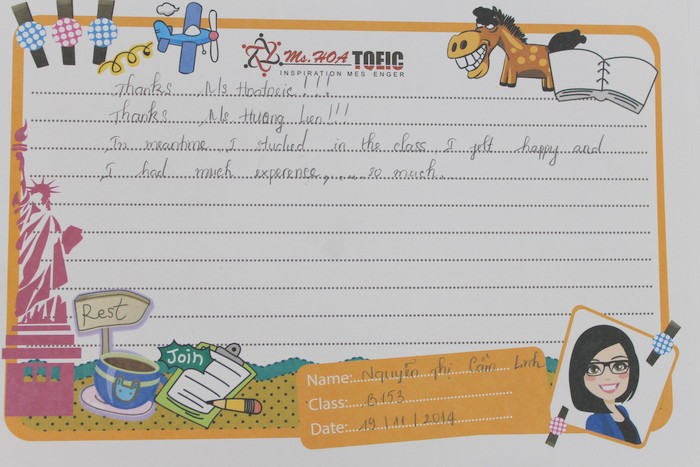 Ms. HOA TOEIC
INSPIRATION MESSENGER
Thanks Ms. Hoatoeic!!!
Thanks Ms. Hương Lien!!!
In meantime, I studied in the class I felt happy and
I had much experence,.....so much.
Rest
Join
Name: Nguyễn Thị Cẩm Linh
Class: B153
Date: 19/11/2014